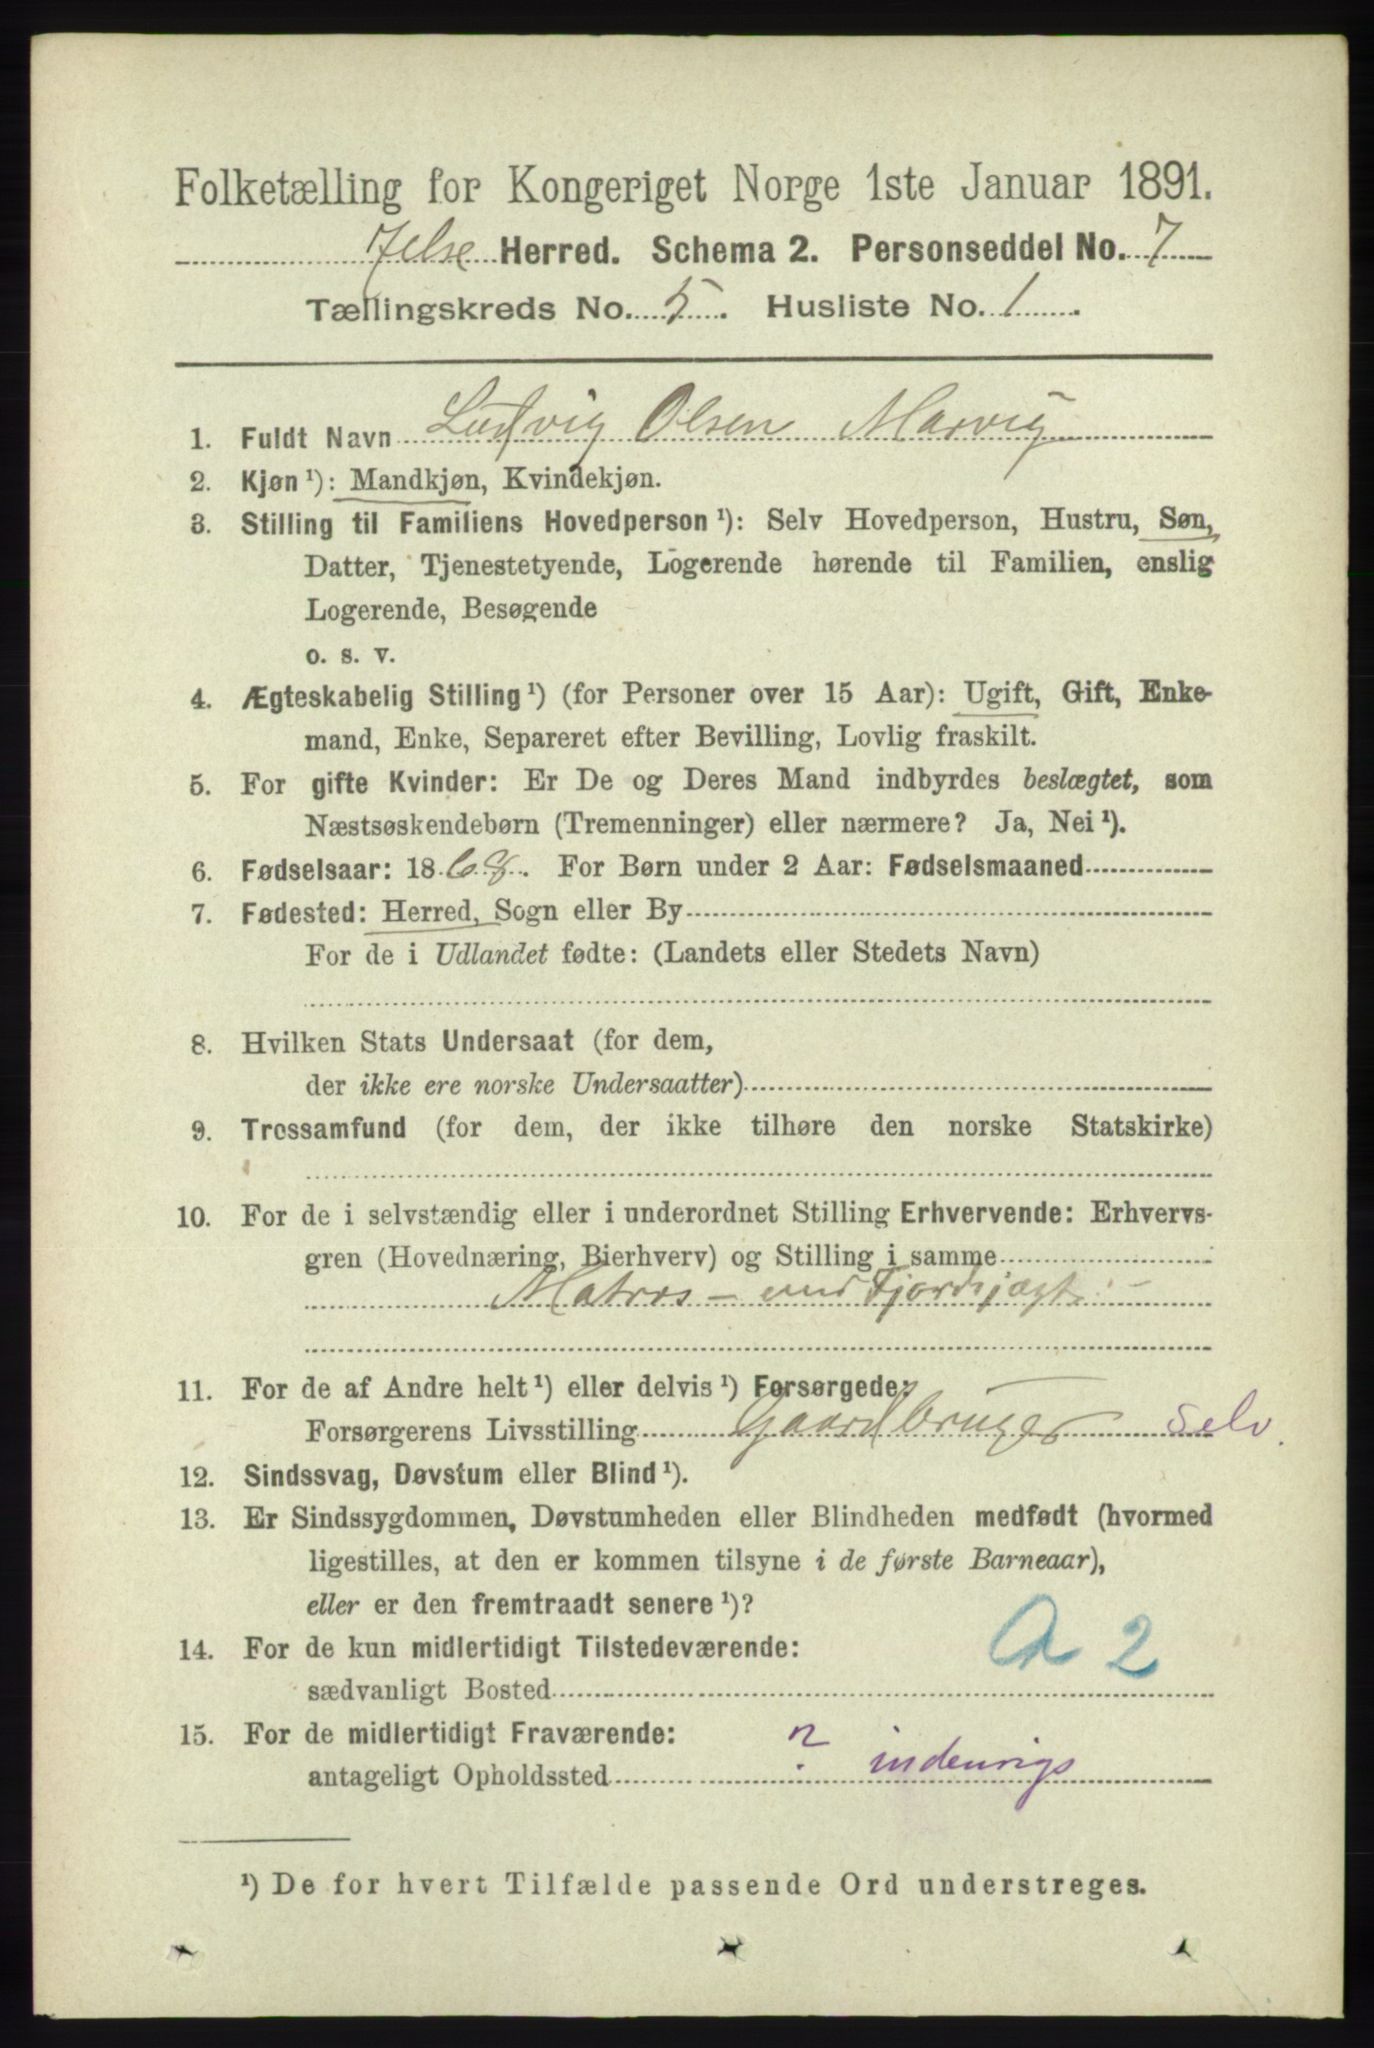 Folketælling for Kongeriget Norge 1ste Januar 1891.
Jelse Herred. Schema 2. Personseddel No. 7
Tællingskreds No. 5. Husliste No. 1.
1. Fuldt Navn Ludvig Olsen Marvig
2. Kjøn ¹): Mandkjøn, Kvindekjøn.
3. Stilling til Familiens Hovedperson ¹): Selv Hovedperson, Hustru, Søn,
Datter, Tjenestetyende, Logerende hørende til Familien, enslig
Logerende, Besøgende
o. s. v.
4. Ægteskabelig Stilling ¹) (for Personer over 15 Aar): Ugift, Gift, Enke-
mand, Enke, Separeret efter Bevilling, Lovlig fraskilt.
5. For gifte Kvinder: Er De og Deres Mand indbyrdes beslægtet, som
Næstsøskendebørn (Tremenninger) eller nærmere? Ja, Nei ¹).
6. Fødselsaar: 1868. For Børn under 2 Aar: Fødselsmaaned
7. Fødested: Herred, Sogn eller By
For de i Udlandet fødte: (Landets eller Stedets Navn)
8. Hvilken Stats Undersaat (for dem,
der ikke ere norske Undersaatter)
9. Trossamfund (for dem, der ikke tilhøre den norske Statskirke)
10. For de i selvstændig eller i underordnet Stilling Erhvervende: Erhvervs-
gren (Hovednæring, Bierhverv) og Stilling i samme
Matros - Fjordsjagt -
11. For de af Andre helt ¹) eller delvis ¹) Forsørgede:
Forsørgerens Livsstilling Gaardbruger Selv.
12. Sindssvag, Døvstum eller Blind ¹).
13. Er Sindssygdommen, Døvstumheden eller Blindheden medfødt (hvormed
ligestilles, at den er kommen tilsyne i de første Barneaar),
eller er den fremtraadt senere ¹)?
14. For de kun midlertidigt Tilstedeværende:
a 2
sædvanligt Bosted
15. For de midlertidigt Fraværende:
antageligt Opholdssted ? indenrigs
¹) De for hvert Tilfælde passende Ord understreges.